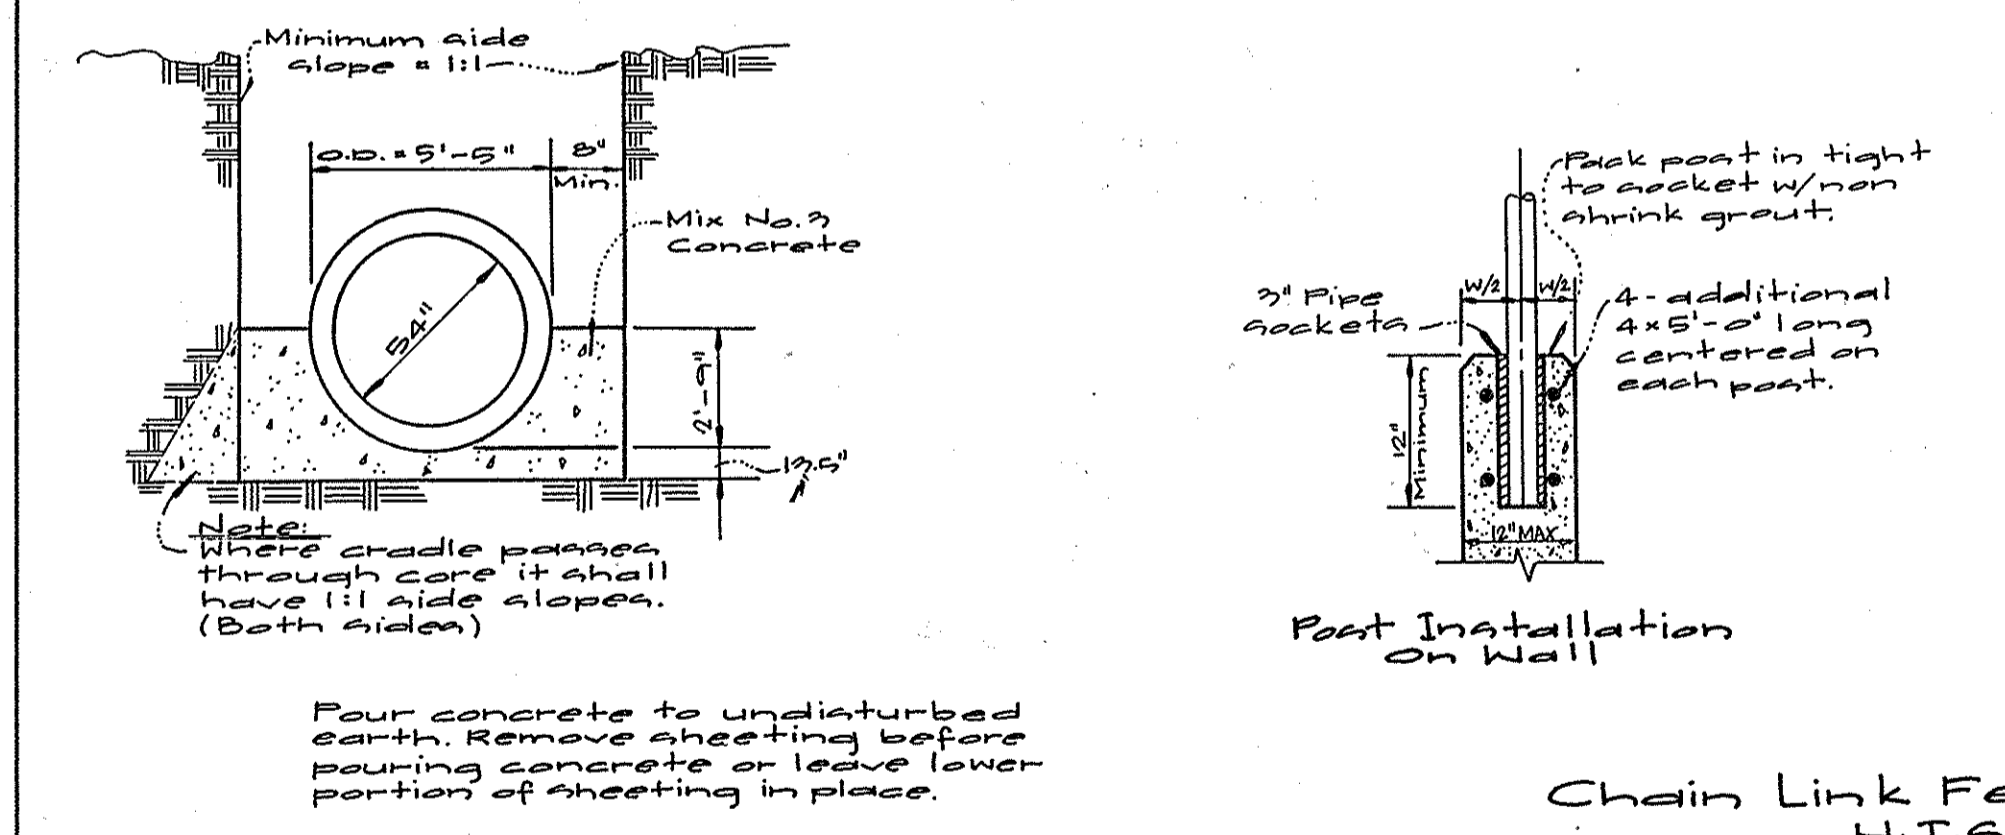 Minimum side
slope = 1:1
O.D. = 5'-5"
8"
Min.
Mix No. 3
Concrete
54"
2'-9"
13.5"
Note:
Where cradle passes
through core it shall
have 1:1 side slopes.
(Both sides)
Pour concrete to undisturbed
earth. Remove sheeting before
pouring concrete or leave lower
portion of sheeting in place.
Pack post in tight
to socket w/non
shrink grout.
W/2
W/2
3" Pipe
sockets
4-additional
4x5'-0" long
centered on
each post.
12"
Minimum
12" MAX
Post Installation
On Wall
Chain Link Fe